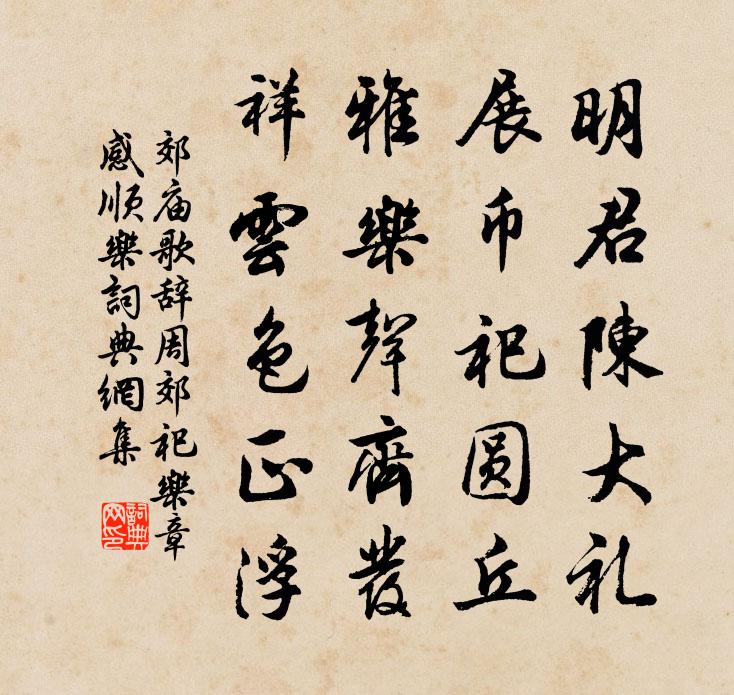 明君陳大礼
展币祀圆丘
雅樂聲齊發
祥雲色正浮
郊庙歌辞周郊祀樂章
感顺樂詞典網集
詞典
网印